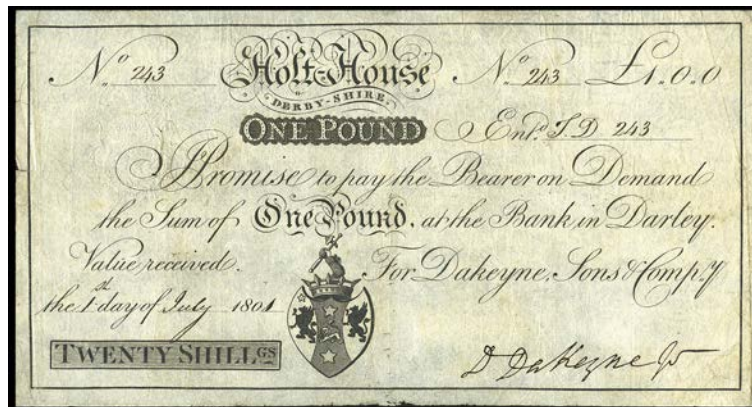 No. 243 Holt-House No. 243 £1.0.0
DERBY-SHIRE.
ONE POUND Entd. J.D 243
I Promise to pay the Bearer on Demand
the Sum of One Pound. at the Bank in Darley.
Value received. For Dakeyne, Sons & Comp.y
the 1st day of July 1801
TWENTY SHILLGS
D Dakeyne Jr